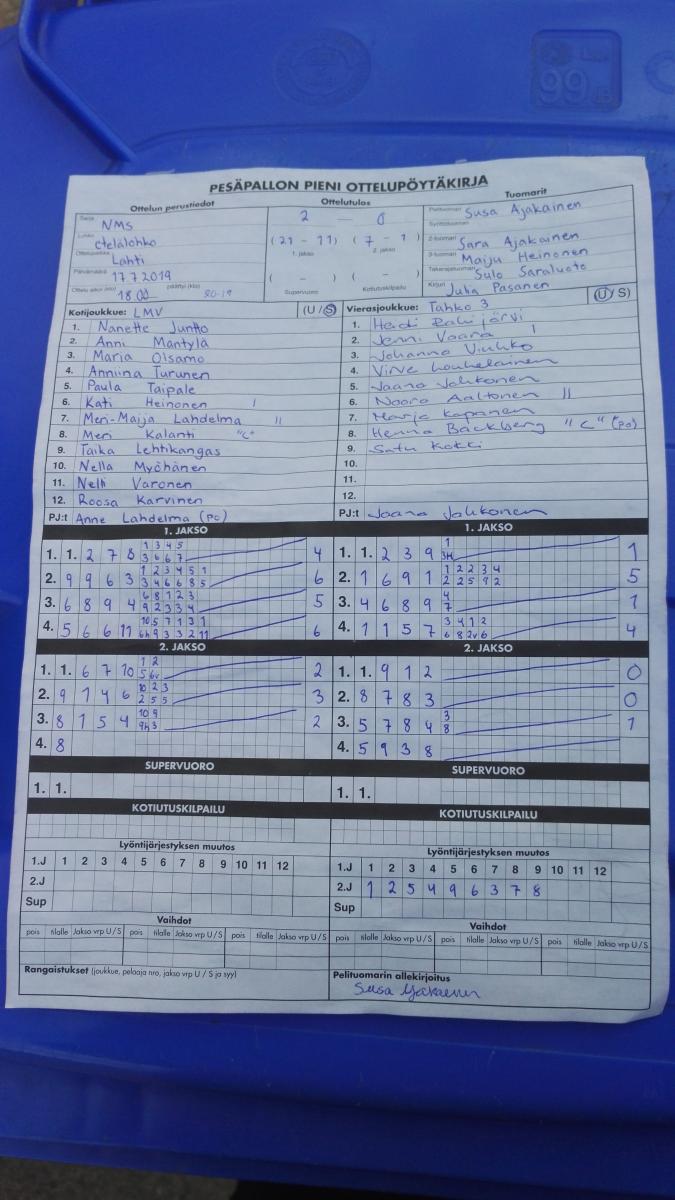 PESÄPALLON PIENI OTTELUPÖYTÄKIRJA
Ottelun perustiedot
Ottelutulos
Tuomarit
Sarja NMS
Lohko etelälohko
Ottelupaikka Lahti
Päivämäärä 17.7.2019
Ottelu alkoi (klo) 18.00 päättyi (klo) 20.19
2 — 0
(21 - 11) (7 - 1)
1. jakso 2. jakso
( - ) ( - )
Supervuoro Kotiutuskilpailu
Pelituomari Susa Ajakainen
Syöttötuomari
2-tuomari Sara Ajakainen
3-tuomari Maiju Heinonen
Takarajatuomari Sulo Saraluoto
Kirjuri Juha Pasanen
Kotijoukkue: LMV (U / S)
1. Nanette Juntto
2. Anni Mäntylä
3. Marja Olsamo
4. Anniina Turunen
5. Paula Taipale
6. Kati Heinonen I
7. Meri-Maija Lahdelma II
8. Meri Kalanti "C"
9. Taika Lehtikangas
10. Nella Myöhänen
11. Nelli Varonen
12. Roosa Karvinen
PJ:t Anne Lahdelma (PO)
Vierasjoukkue: Tahko 3 (U / S)
1. Heidi
2. Jenni Vaara I
3. Johanna
4. Virve Louhelainen
5. Jaana Jolkonen
6. Noora Aaltonen II
7. Marja Kopanen
8. Henna Bäckberg "C" (PO)
9. Satu Kokki
10.
11.
12.
PJ:t Jaana Jolkonen
1. JAKSO
1. 1. 2 7 8 1 3 4 5 4
3 6 6 7
2. 9 9 6 3 1 2 3 4 5 1 6
3 4 6 6 8 5
3. 6 8 9 4 6 8 1 2 3 5
9 2 3 3 4
4. 5 6 6 11 10 5 7 1 3 1 6
6h 9 3 3 2 11
2. JAKSO
1. 1. 6 7 10 1 2 2
5 6v
2. 9 1 4 6 10 2 3 3
2 5 5
3. 8 1 5 4 10 9 2
9h 3
4. 8
SUPERVUORO
1. 1.
KOTIUTUSKILPAILU
Lyöntijärjestyksen muutos
1.J 1 2 3 4 5 6 7 8 9 10 11 12
2.J
Sup
Vaihdot
pois tilalle Jakso vrp U/S pois tilalle Jakso vrp U/S pois tilalle Jakso vrp U/S
Rangaistukset (joukkue, pelaaja nro, jakso vrp U / S ja syy)
1. JAKSO
1. 1. 2 3 9 1 1
3H
2. 1 6 9 1 1 2 2 3 4 5
2 2 5 9 2
3. 4 6 8 9 4 1
7
4. 1 1 5 7 3 4 1 2 4
6 8 2v 6
2. JAKSO
1. 1. 9 1 2 0
2. 8 7 8 3 0
3. 5 7 8 4 3 1
8
4. 5 9 3 8
SUPERVUORO
1. 1.
KOTIUTUSKILPAILU
Lyöntijärjestyksen muutos
1.J 1 2 3 4 5 6 7 8 9 10 11 12
2.J 1 2 5 4 9 6 3 7 8
Sup
Vaihdot
pois tilalle Jakso vrp U/S pois tilalle Jakso vrp U/S pois tilalle Jakso vrp U/S
Pelituomarin allekirjoitus
Susa Ajakainen
99